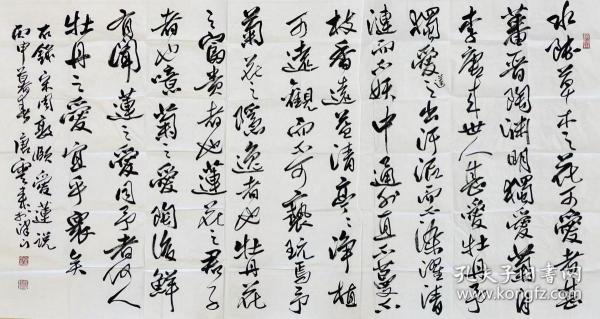 水陆草木之花可爱者甚
蕃晋陶渊明独爱菊自
李唐来世人甚爱牡丹予
獨愛蓮之出淤泥而不染濯清
漣而不妖中通外直不蔓不
枝香遠益清亭亭净植
可遠觀而不可褻玩焉予
菊花之隱逸者也牡丹花
之富貴者也蓮花之君子
者也噫菊之愛陶後鮮
有聞蓮之愛同予者何人
牡丹之愛宜乎眾矣
右錄宋周敦頤愛蓮說
丙申暮春
孔夫子旧书网
book.kongfz.com